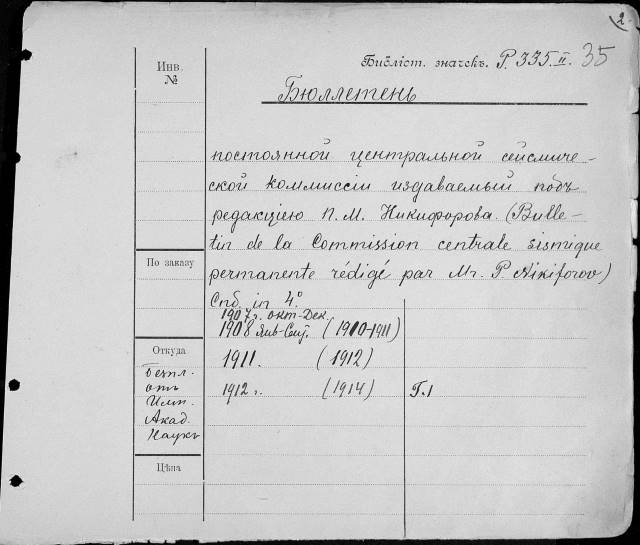 2.
Библіот. значекъ. Р. 335. II. 35
Инв.
№
Бюллетень
постоянной центральной сейсмиче-
ской коммиссіи издаваемый подъ
редакціею П. М. Никифорова. (Bulle-
tin de la Commission centrale sismique
permanente rédigé par Mr. P. Nikiforov)
По заказу
Спб. in 4.º
1907 г. Окт-Дек.
1908 Янв-Сент. (1910-1911)
Откуда
1911. (1912)
Безпл.
отъ
Имп.
Акад.
Наукъ
1912 г. (1914) Г.1
Цѣна